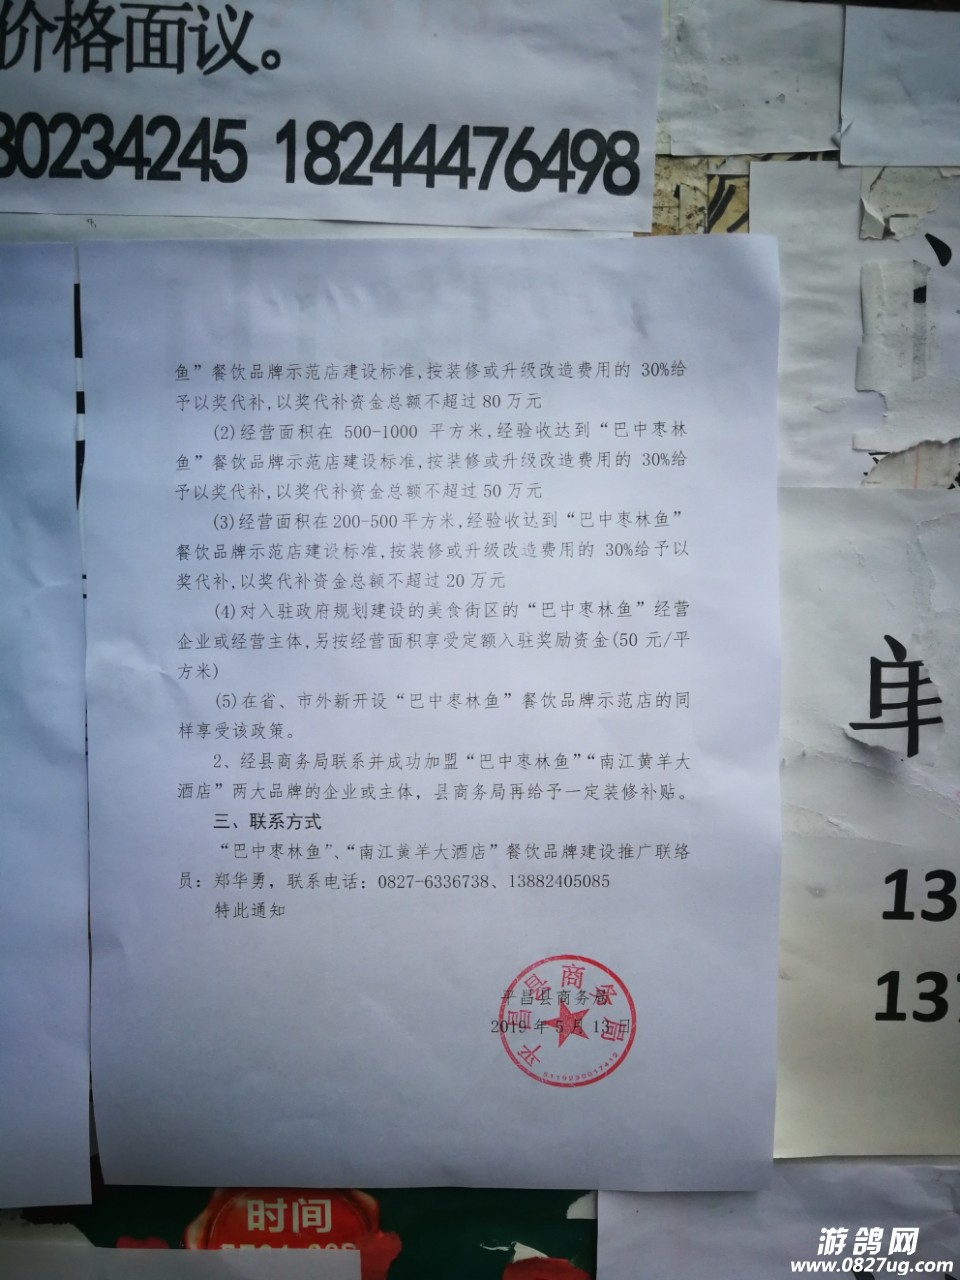 价格面议。
30234245 18244476498
鱼”餐饮品牌示范店建设标准,按装修或升级改造费用的 30%给
予以奖代补,以奖代补资金总额不超过 80 万元
(2)经营面积在 500-1000 平方米,经验收达到“巴中枣林
鱼”餐饮品牌示范店建设标准,按装修或升级改造费用的 30%给
予以奖代补,以奖代补资金总额不超过 50 万元
(3)经营面积在200-500平方米,经验收达到“巴中枣林鱼”
餐饮品牌示范店建设标准,按装修或升级改造费用的 30%给予以
奖代补,以奖代补资金总额不超过 20 万元
(4)对入驻政府规划建设的美食街区的“巴中枣林鱼”经营
企业或经营主体,另按经营面积享受定额入驻奖励资金(50 元/平
方米)
(5)在省、市外新开设“巴中枣林鱼”餐饮品牌示范店的同
样享受该政策。
2、经县商务局联系并成功加盟“巴中枣林鱼”“南江黄羊大
酒店”两大品牌的企业或主体，县商务局再给予一定装修补贴。
三、联系方式
“巴中枣林鱼”、“南江黄羊大酒店”餐饮品牌建设推广联络
员：郑华勇，联系电话：0827-6336738、13882405085
特此通知
平昌县商务局
2019 年 5 月 13 日
平昌县商务局
13
137
时间
游鸽网
www.0827ug.com